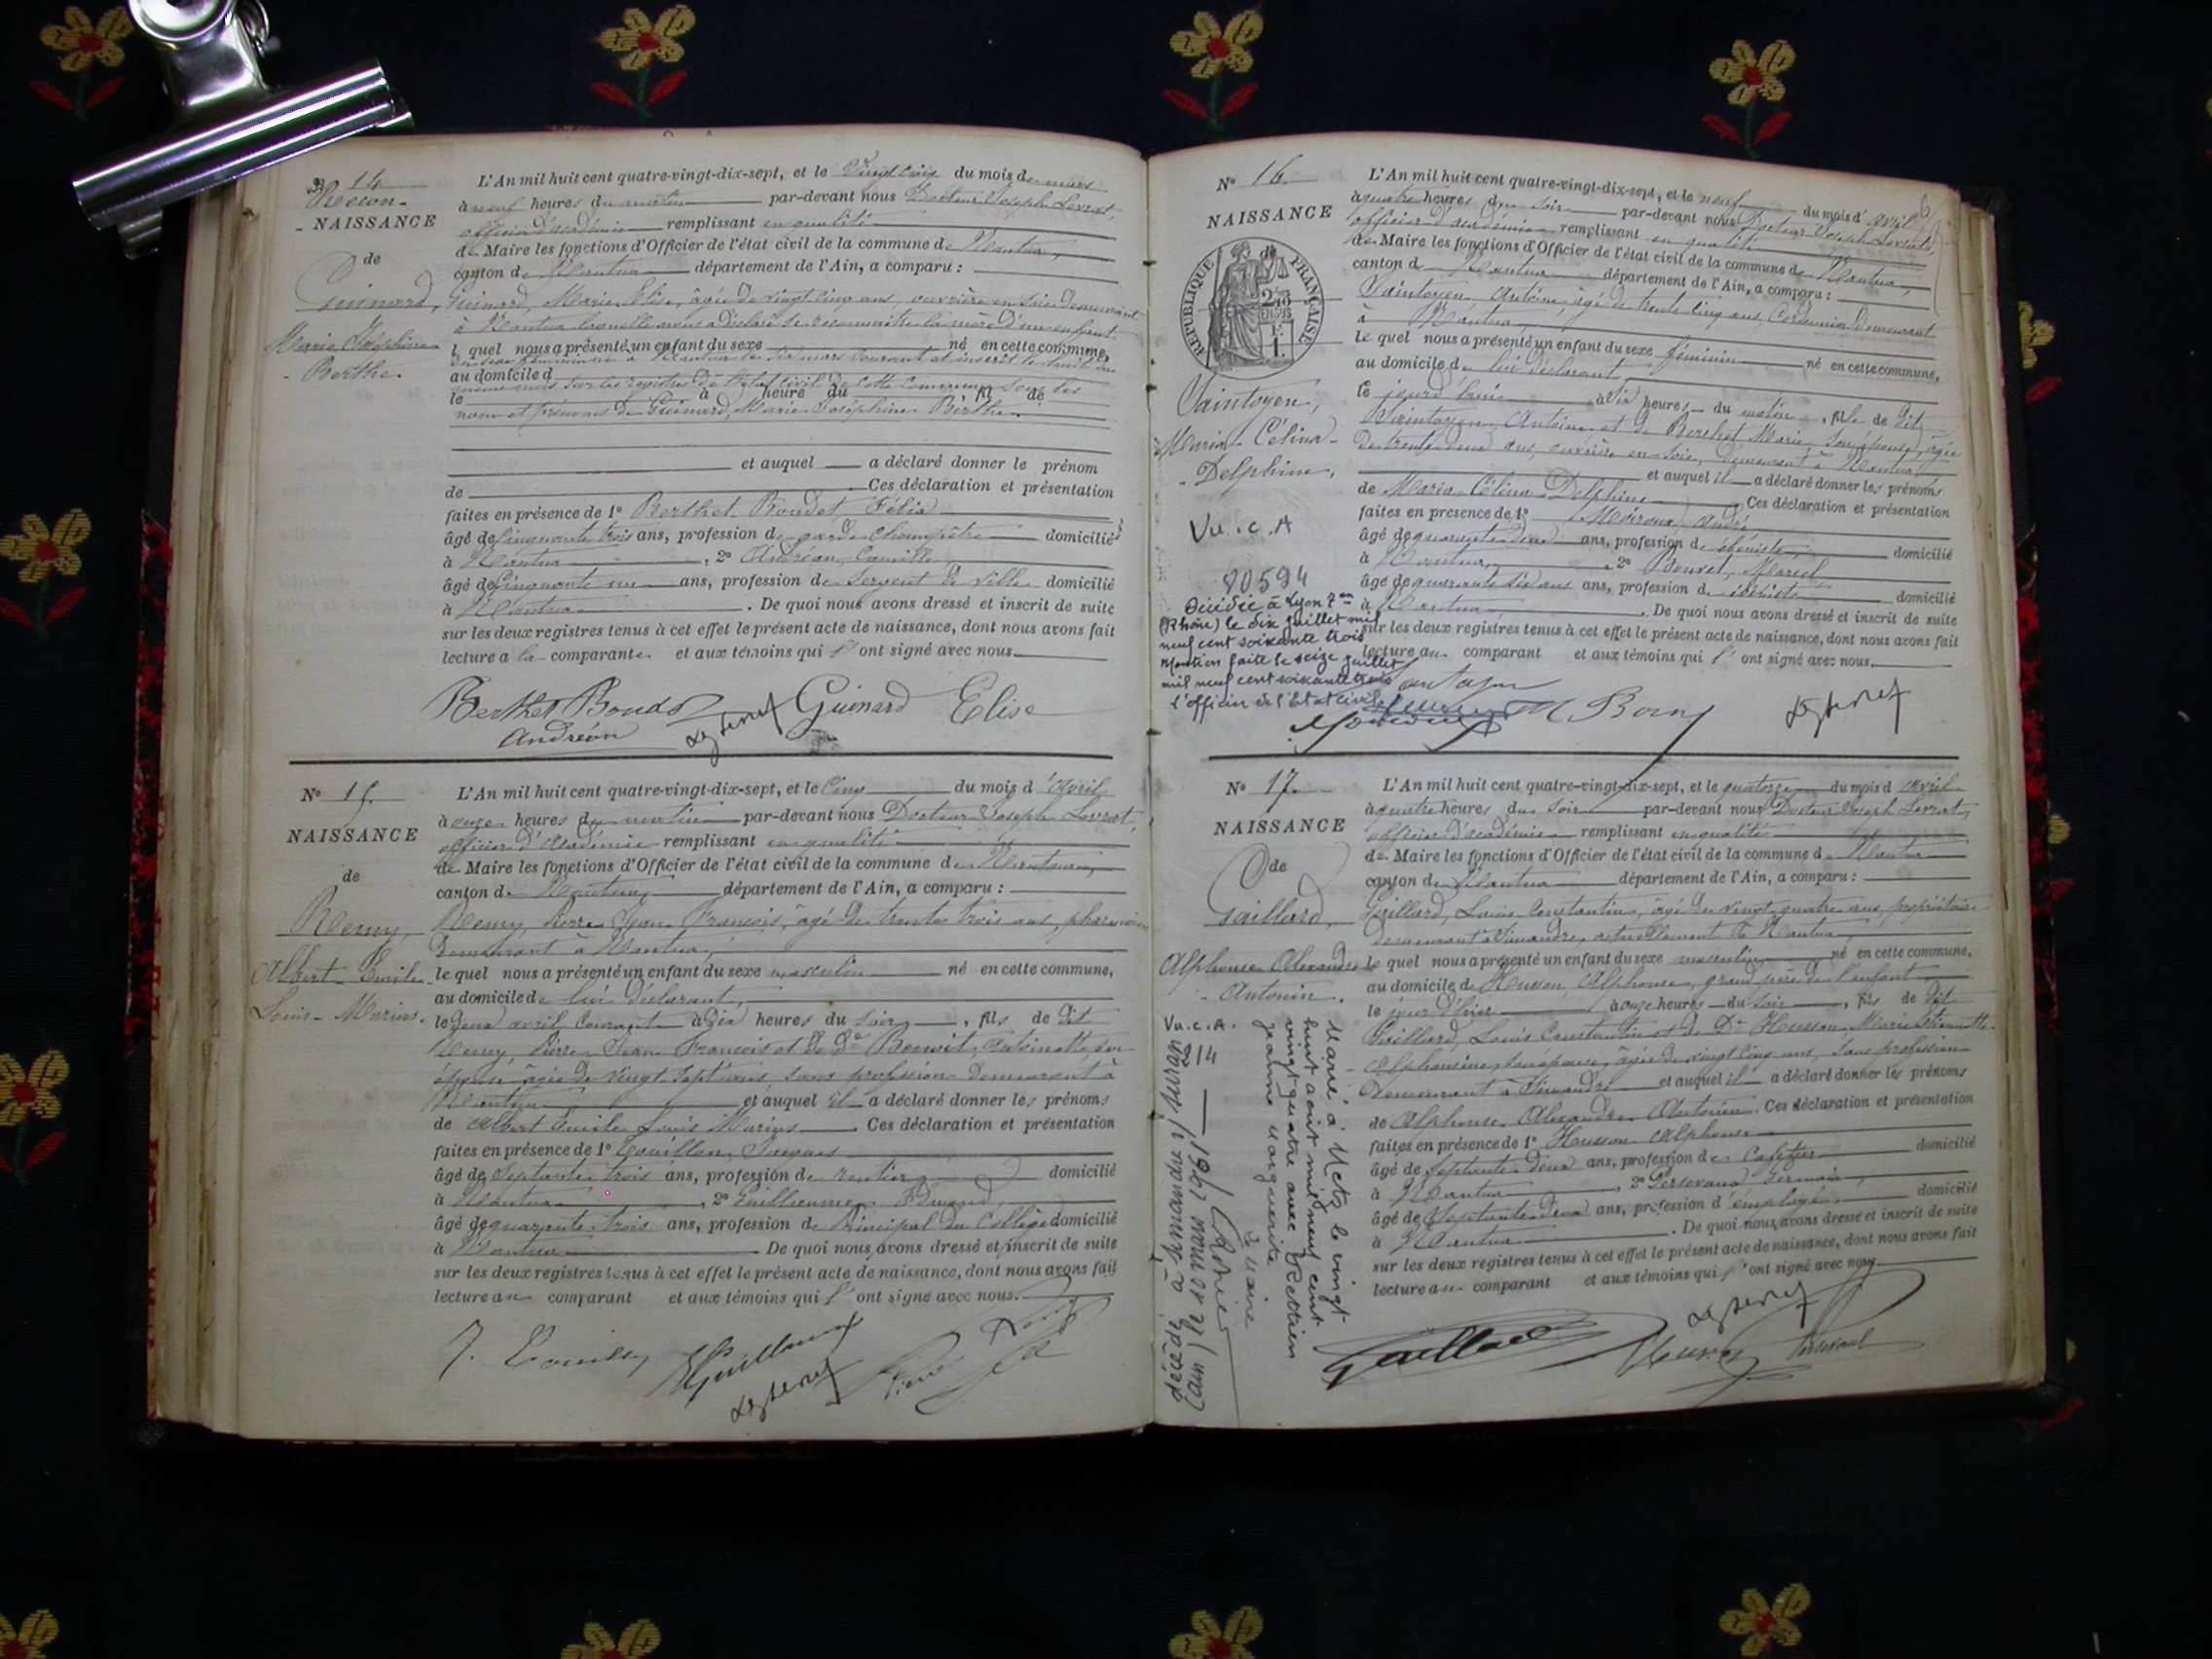 No 14
Recon-
NAISSANCE
de
Guinard,
Marie Joséphine
- Berthe.
L'An mil huit cent quatre-vingt-dix-sept, et le vingt cinq du mois de mars
à neuf heures du matin par-devant nous Docteur Joseph Levrat,
officier d'académie remplissant en qualité
de Maire les fonctions d'Officier de l'état civil de la commune de Nantua,
canton de Nantua département de l'Ain, a comparu :
Guinard, Marie Elise, âgée de vingt cinq ans, ouvrière en soie demeurant
à Nantua laquelle nous a déclaré se reconnaître la mère d'un enfant
l quel nous a présenté un enfant du sexe né en cette commune,
du sexe féminin né à Nantua le six mars courant et inscrit le huit du
au domicile d
même mois sur les registres de l'état civil de cette commune sous les
le à heure du fil de
nom et prénoms de Guinard, Marie Joséphine Berthe.
et auquel a déclaré donner le prénom
de Ces déclaration et présentation
faites en présence de 1º Berthet Boudet, Félix
âgé de cinquante trois ans, profession de garde champêtre domicilié
à Nantua, 2º Andréan, Camille
âgé de cinquante un ans, profession de sergent de ville domicilié
à Nantua. De quoi nous avons dressé et inscrit de suite
sur les deux registres tenus à cet effet le présent acte de naissance, dont nous avons fait
lecture a la comparante et aux témoins qui l'ont signé avec nous.
Berthet Boudet Guinard Elise
Andréan
No 15.
NAISSANCE
de
Remy,
Albert - Emile -
Louis - Marius.
L'An mil huit cent quatre-vingt-dix-sept, et le cinq du mois d'Avril
à onze heures du matin par-devant nous Docteur Joseph Levrat,
officier d'académie remplissant en qualité
de Maire les fonctions d'Officier de l'état civil de la commune de Nantua,
canton de Nantua département de l'Ain, a comparu :
Remy, Pierre Jean François, âgé de trente trois ans, pharmacien
demeurant à Nantua,
le quel nous a présenté un enfant du sexe masculin né en cette commune,
au domicile de lui déclarant,
le deux avril courant à dix heures du soir, fils de dit
Remy, Pierre Jean François et de De Benoit, Antoinette, son
épouse âgée de vingt sept ans, sans profession demeurant à
Nantua et auquel il a déclaré donner les prénoms
de Albert Emile Louis Marius. Ces déclaration et présentation
faites en présence de 1º
âgé de septante trois ans, profession de rentier domicilié
à Nantua, 2º Guillaume, Edmond,
âgé de quarante trois ans, profession de Principal du Collège domicilié
à Nantua. De quoi nous avons dressé et inscrit de suite
sur les deux registres tenus à cet effet le présent acte de naissance, dont nous avons fait
lecture au comparant et aux témoins qui l'ont signé avec nous.
No 16.
NAISSANCE
de
RÉPUBLIQUE FRANÇAISE
Saintoyen,
Maria - Célina -
- Delphine,
Vu. c. A
80594
Décédée à Lyon 7em
(Rhône) le dix juillet mil
neuf cent soixante trois
Mention faite le seize juillet
mil neuf cent soixante trois
l'officier de l'Etat civil
L'An mil huit cent quatre-vingt-dix-sept, et le neuf du mois d'avril
à quatre heures du soir par-devant nous Docteur Joseph Levrat,
officier d'académie remplissant en qualité
de Maire les fonctions d'Officier de l'état civil de la commune de Nantua,
canton de Nantua département de l'Ain, a comparu :
Saintoyen, Antoine, âgé de trente cinq ans, Cordonnier demeurant
à Nantua
le quel nous a présenté un enfant du sexe féminin né en cette commune,
au domicile de lui déclarant,
le jourd'hui à six heures du matin, fille de dit
Saintoyen, Antoine et de Berthet Marie, son épouse, âgée
de trente deux ans, ouvrière en soie, demeurant à Nantua
et auquel il a déclaré donner les prénoms
de Maria Célina Delphine Ces déclaration et présentation
faites en présence de 1º André
âgé de quarante deux ans, profession d'ébéniste, domicilié
à Nantua, 2º Marcel
âgé de quarante six ans ans, profession d'ébéniste domicilié
à Nantua. De quoi nous avons dressé et inscrit de suite
sur les deux registres tenus à cet effet le présent acte de naissance, dont nous avons fait
lecture au comparant et aux témoins qui l'ont signé avec nous.
No 17.
NAISSANCE
de
Gaillard,
Alphonse Alexandre
- Antonin.
Vu. c. A.
214
Marié à Metz le vingt-
huit août mil neuf cent
vingt quatre avec Rettien
Jeanne Marguerite
Le Maire
décédé à Simandre s/ Suran
(Ain) le 10 mars 1951
L'An mil huit cent quatre-vingt-dix-sept, et le quatorze du mois d'avril
à quatre heures du soir par-devant nous Docteur Joseph Levrat,
officier d'académie remplissant en qualité
de Maire les fonctions d'Officier de l'état civil de la commune d Nantua
canton de Nantua département de l'Ain, a comparu :
Gaillard, Louis Constantin, âgé de vingt quatre ans, propriétaire
demeurant à Simandre, actuellement à Nantua,
le quel nous a présenté un enfant du sexe masculin né en cette commune,
au domicile de Husson, Alphonse, grand père de l'enfant
le jour d'hier à onze heures du soir, fils de dit
Gaillard, Louis Constantin et de De Husson, Marie
Alphonsine, son épouse, âgée de vingt cinq ans, sans profession
demeurant à Simandre et auquel il a déclaré donner les prénoms
de Alphonse Alexandre Antonin. Ces déclaration et présentation
faites en présence de 1º Husson Alphonse
âgé de septante deux ans, profession de cafetier domicilié
à Nantua, 2º Germain,
âgé de septante deux ans, profession d'employé, domicilié
à Nantua. De quoi nous avons dressé et inscrit de suite
sur les deux registres tenus à cet effet le présent acte de naissance, dont nous avons fait
lecture au comparant et aux témoins qui l'ont signé avec nous.
Gaillard